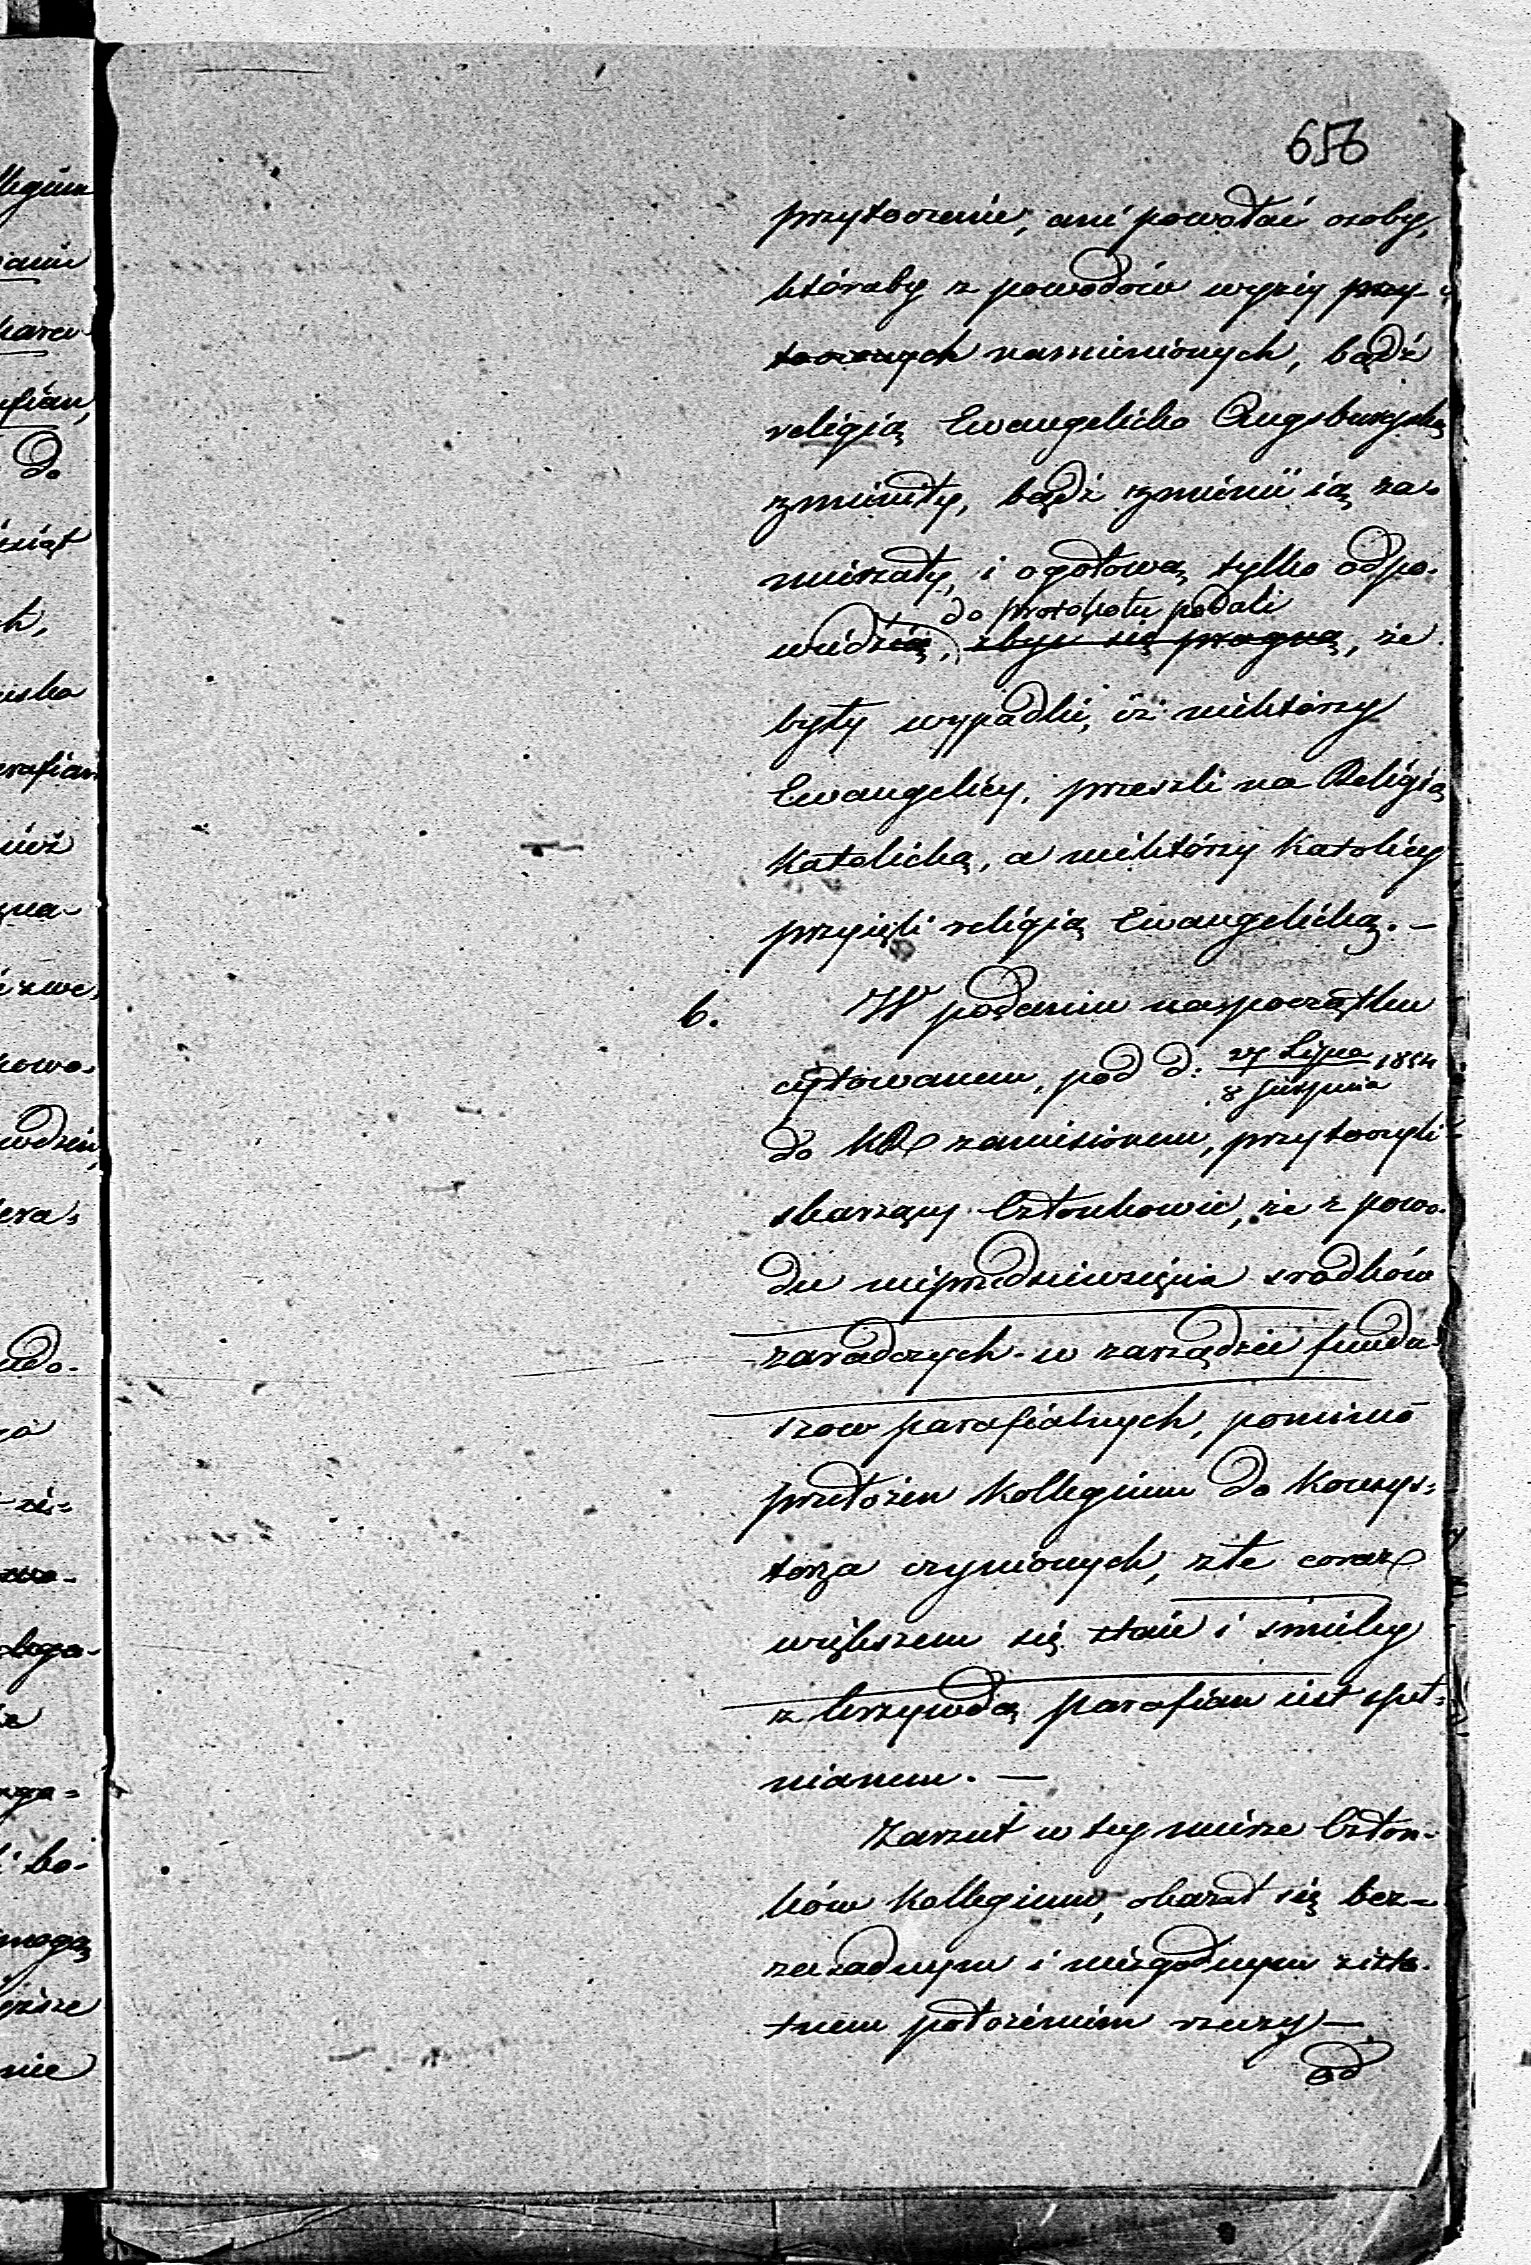 656
przytoczenie, ani powołać osoby,
któraby z powodów wyżey przy-
toczonych namienionych, bądź
religią Ewangelicko Augsburgską
zmieniły, bądź zmienić ią za-
mierzały, i ogołową tylko odpo-
do protokołu podali
wiedzią, zbyć się pragną, że
były wypadki, iż niektórzy
Ewangelicy, przeszli na Religią
Katolicką, a niektórzy Katolicy
przyięli religią Ewangelicką. —
6. W podaniu napoczątku
cytowanem, pod d. 27 Lipca 1854
8 Sierpnia
do KR zaniesionem, przytoczyli
skarżący Członkowie, że z powo-
du nieprzedsięwzięcia srodków
zaradczych w zarządzie fundu-
szow parafialnych, pomimo
przełożen Kollegium do Konsys-
torza czynionych, złe coraz
większem się staie i smieley
z krzywdą parafian iest speł-
nianem. —
Zarzut w tey mierze Człon-
ków Kollegium, okazał się bez-
zasadnym i niezgodnym z isto-
tnem położeniem rzeczy —
od